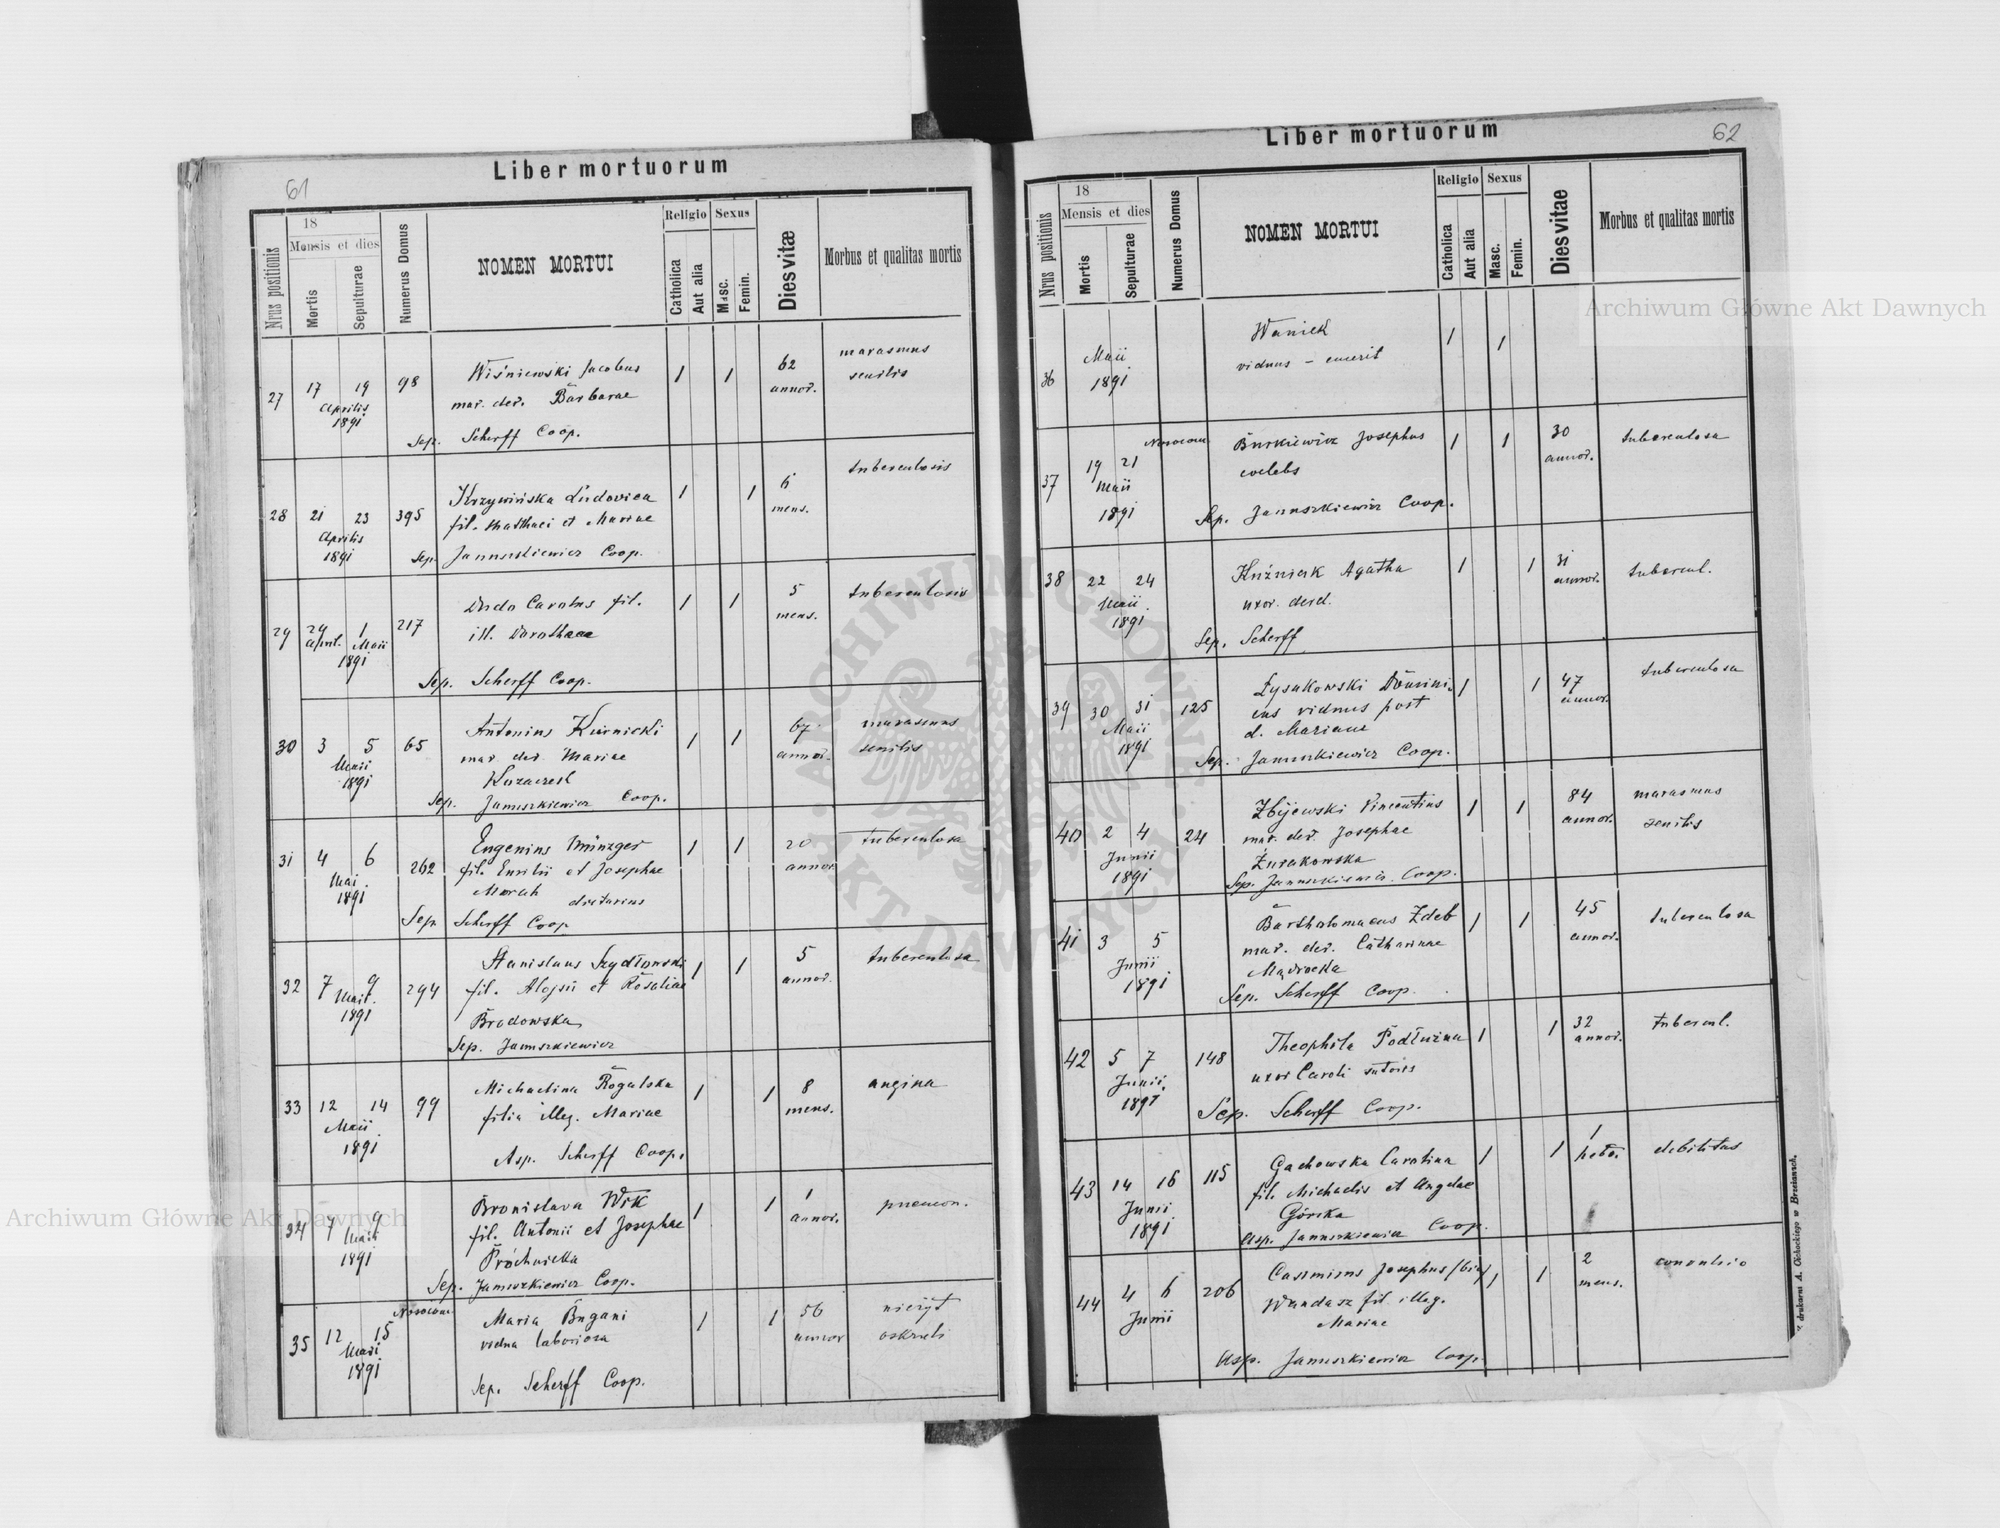 61
Liber mortuorum
Nrus positionis
18
Mensis et dies
Mortis
Sepulturae
Numerus Domus
NOMEN MORTUI
Religio
Catholica
Aut alia
Sexus
Masc.
Femin.
Dies vitæ
Morbus et qualitas mortis
27 17 19 98 Wiśniewski Jacobus 1 1 62 marasmus
Aprilis mar. der. Barbarae annor. senilis
1891
Sep. Scherff Coop.
28 21 23 395 Krzywińska Ludovica 1 1 6 tuberculosis
Aprilis fil. Matthaei et Mariae mens.
1891 Sep. Januszkiewicz Coop.
29 29 1 217 Dudo Carolus fil. 1 1 5 tuberculosis
April. Maii ill. Dorotheae mens.
1891
Sep. Scherff Coop.
30 3 5 65 Antonius 1 1 67 marasmus
Maii mar. der. Mariae annor. senilis
1891
Sep. Januszkiewicz Coop.
31 4 6 262 Eugenius Münzger 1 1 20 tuberculosa
Mai fil. Emilii et Josephae annor.
1891 dietarius
Sep. Scherff Coop
32 7 9 294 Stanislaus Szydłowski 1 1 5 tuberculosa
Maii fil. Alojsii et Rosaliae annor.
1891 Brodowska
Sep. Januszkiewicz
33 12 14 99 Michaelina Rogalska 1 1 8 angina
Maii filia illeg. Mariae mens.
1891
Asp. Scherff Coop.
34 7 9 Bronislava Wik 1 1 1 pneumon.
Maii fil. Antonii et Josephae annor.
1891 Próchnicka
Sep. Januszkiewicz Coop.
35 12 15 Nosocom. Maria Bugani 1 1 56 nieżyt
Maii vidua laboriosa annor oskrzeli
1891
Sep. Scherff Coop.
62
Liber mortuorum
Nrus positionis
18
Mensis et dies
Mortis
Sepulturae
Numerus Domus
NOMEN MORTUI
Religio
Catholica
Aut alia
Sexus
Masc.
Femin.
Dies vitae
Morbus et qualitas mortis
36 Maii Waniek 1 1
1891 viduus – emerit
37 19 21 Nosocom. Burkiewicz Josephus 1 1 30 tuberculosa
Maii coelebs annor.
1891 Sep. Januszkiewicz Coop.
38 22 24 Kuźniak Agatha 1 1 31 tubercul.
Maii uxor. annor.
1891
Sep. Scherff
39 30 31 125 Łysakowski Domini- 1 1 47 tuberculosa
Maii cus viduus post annor.
1891 d. Mariane
Sep. Januszkiewicz Coop.
40 2 4 24 Zbijewski Vincentius 1 1 84 marasmus
Junii mar. der. Josephae annor. senilis
1891 Żurakowska
Sep. Januszkiewicz Coop.
41 3 5 Bartholomaeus Zdeb 1 1 45 tuberculosa
Junii mar. der. Catharinae annor.
1891
Sep. Scherff Coop.
42 5 7 148 Theophila Podłużna 1 1 32 tubercul.
Junii uxor Caroli sutoris annor.
1891
Sep. Scherff Coop.
43 14 16 115 Gachowska Carolina 1 1 1 debilitas
Junii fil. Michaelis et Angelae hebd.
1891 Górska
Asp. Januszkiewicz Coop.
44 4 6 206 Casimirus Josephus 1 1 2
Junii Wandasz fil. illeg. mens.
Mariae
Asp. Januszkiewicz Coop.
Z drukarni A. Ołohockiego w Brzeżanach.
Archiwum Główne Akt Dawnych
Archiwum Główne Akt Dawnych
ARCHIWUM GŁÓWNE AKT DAWNYCH